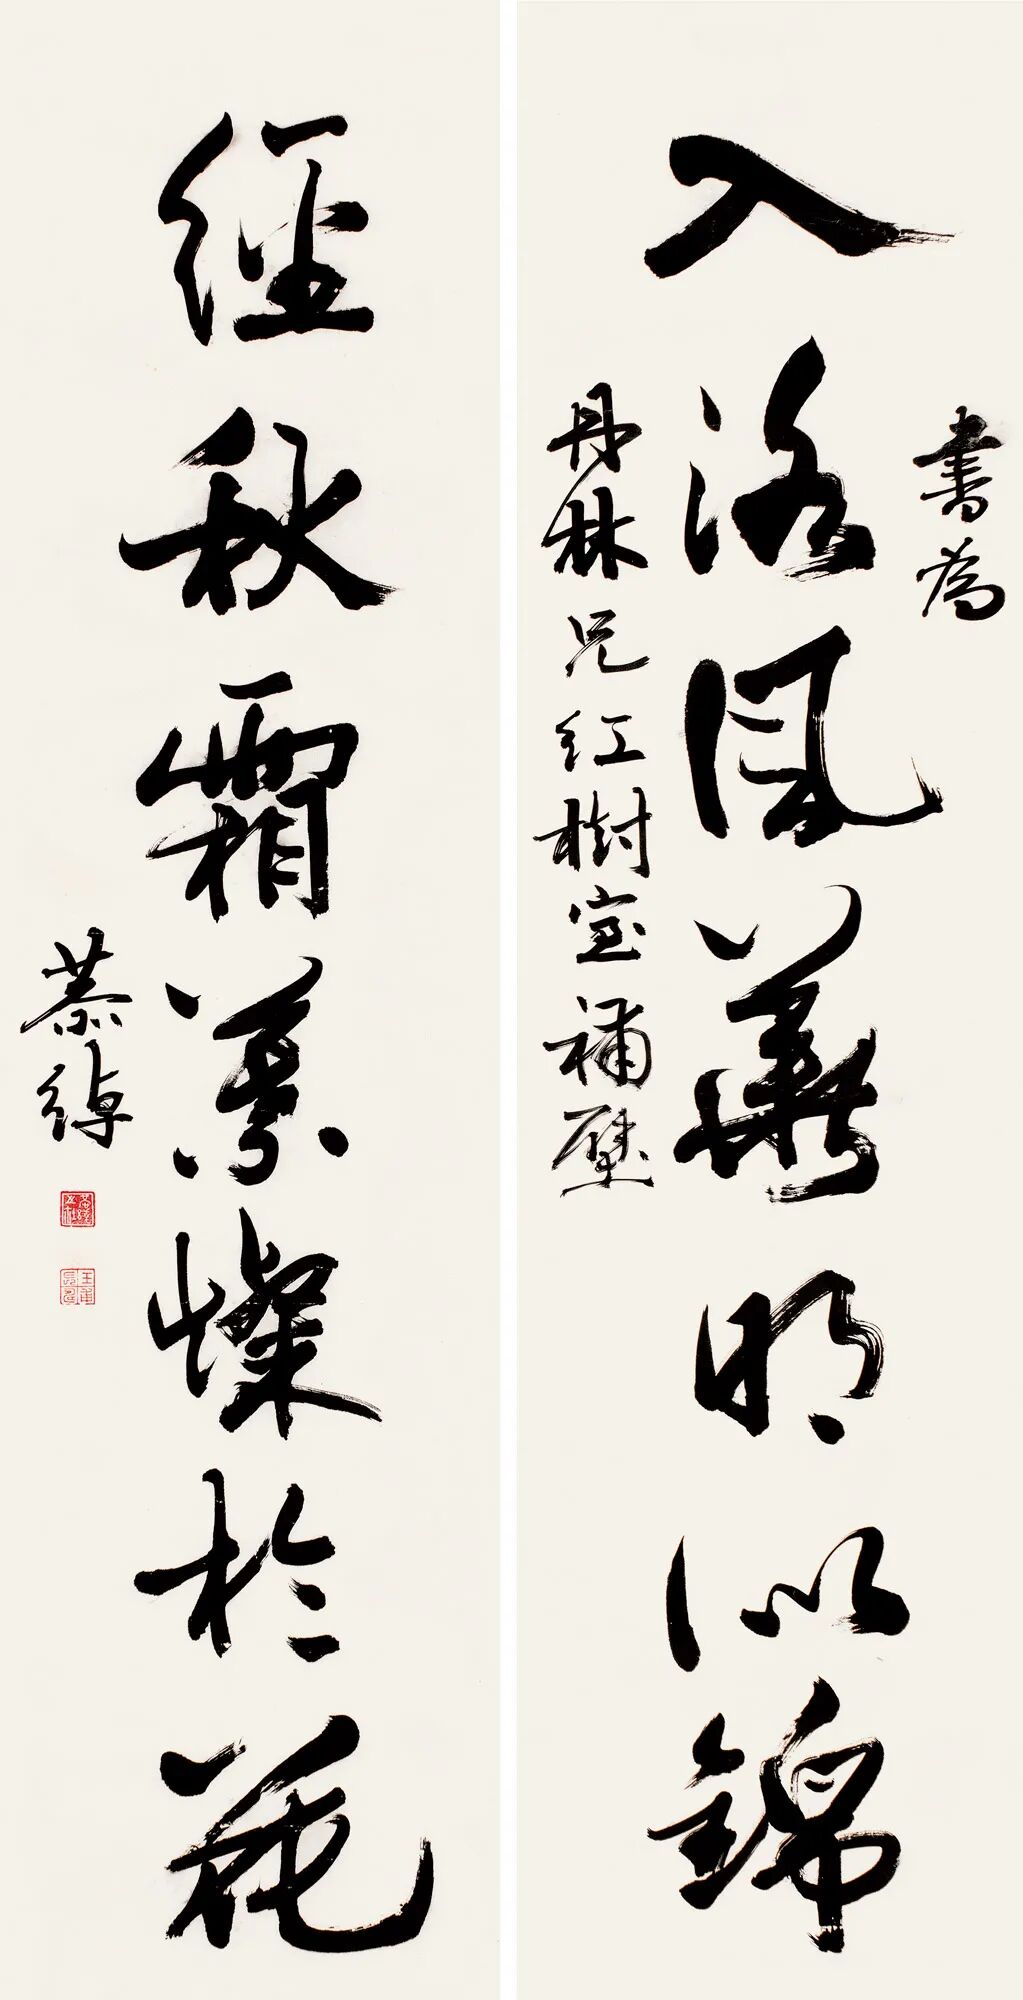 書為
入洛風華明似錦
丹林兄紅樹室補壁
經秋霜葉燦於花
慕綽